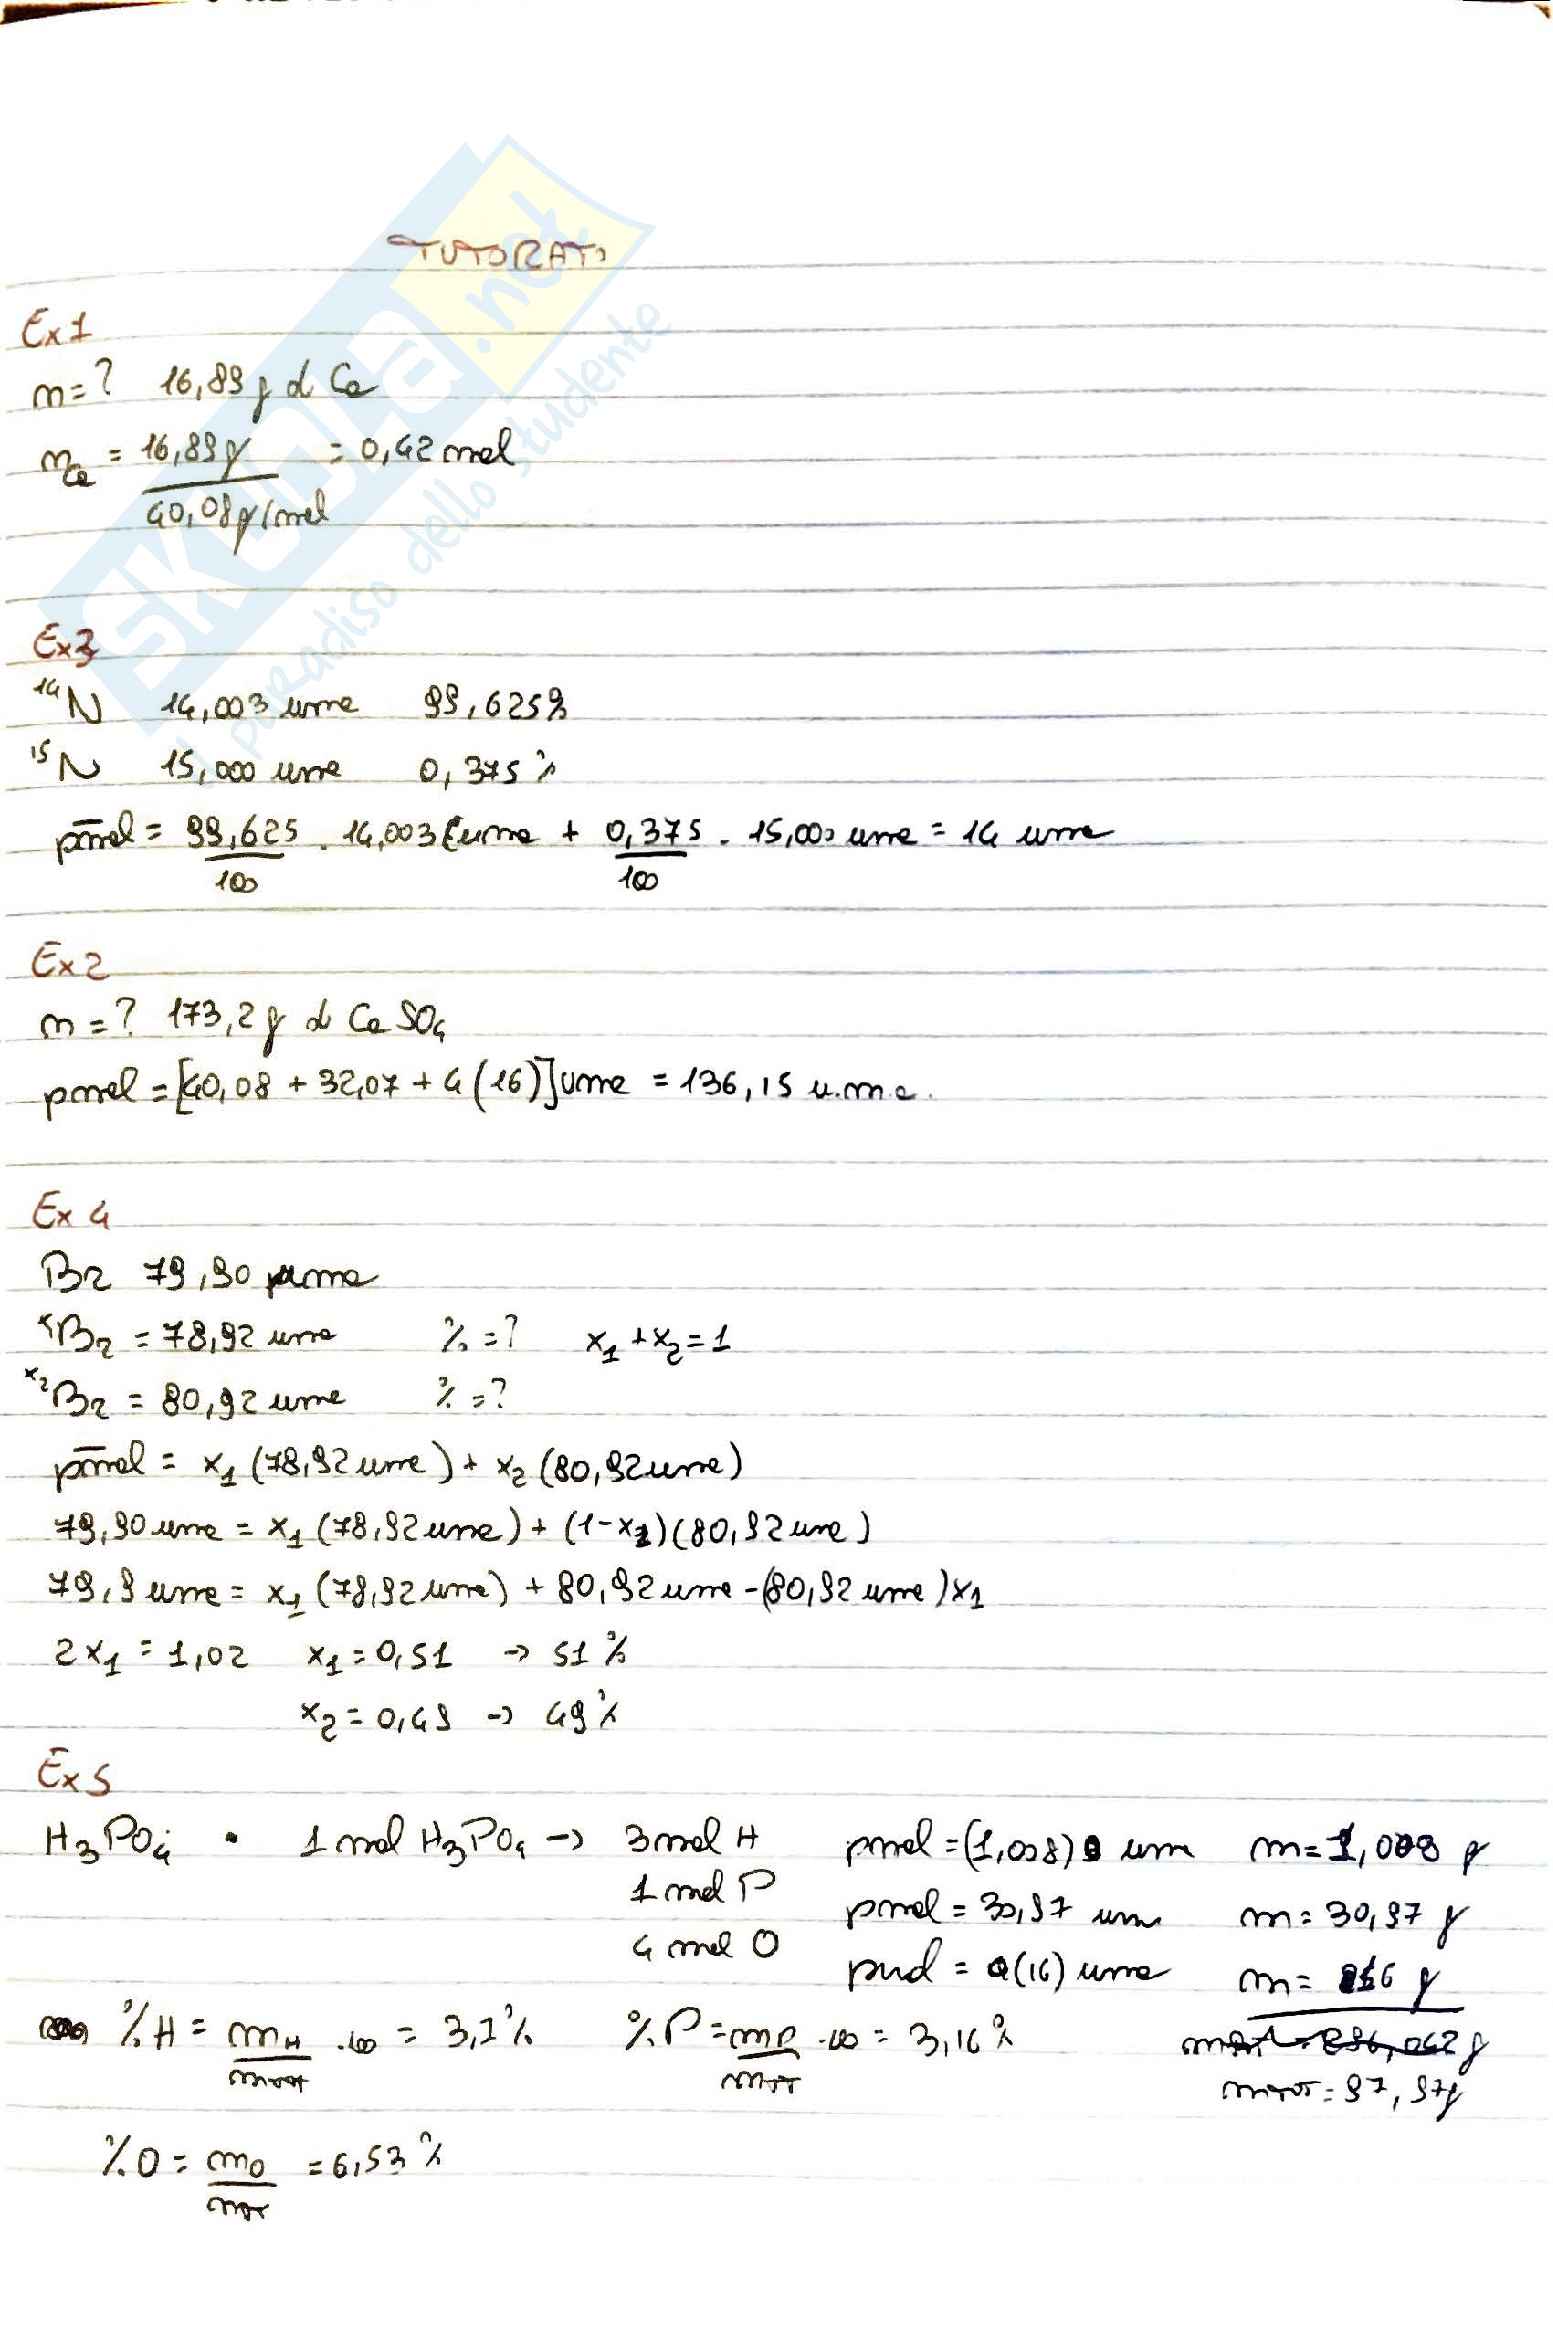 TUTORATO
Ex 1
n = ? 16,89 g di Ca
nCa = 16,89 g / 40,08 g/mol = 0,42 mol
Ex 3
¹⁴N 14,003 uma 99,625%
¹⁵N 15,000 uma 0,375%
p̄mol = 99,625/100 · 14,003 uma + 0,375/100 · 15,000 uma = 14 uma
Ex 2
n = ? 173,2 g di CaSO₄
pmol = [40,08 + 32,07 + 4(16)] uma = 136,15 u.m.a.
Ex 4
Br 79,90 uma
Br = 78,92 uma % = ? x₁ + x₂ = 1
ˣ²Br = 80,92 uma % = ?
p̄mol = x₁ (78,92 uma) + x₂ (80,92 uma)
79,90 uma = x₁ (78,92 uma) + (1-x₁)(80,92 uma)
79,9 uma = x₁ (78,92 uma) + 80,92 uma - (80,92 uma)x₁
2x₁ = 1,02 x₁ = 0,51 → 51%
x₂ = 0,49 → 49%
Ex 5
H₃PO₄ • 1 mol H₃PO₄ → 3 mol H pmol = (1,008) uma m = 1,008 g
1 mol P pmol = 30,97 uma m = 30,97 g
4 mol O pmol = 4(16) uma m = g
%H = mH/mtot · 100 = 3,1% %P = mP/mtot · 100 = 3,16%
mtot = 97,97g
%O = mO/mtot = 6,53%
SKUOLA.net
il paradiso dello studente